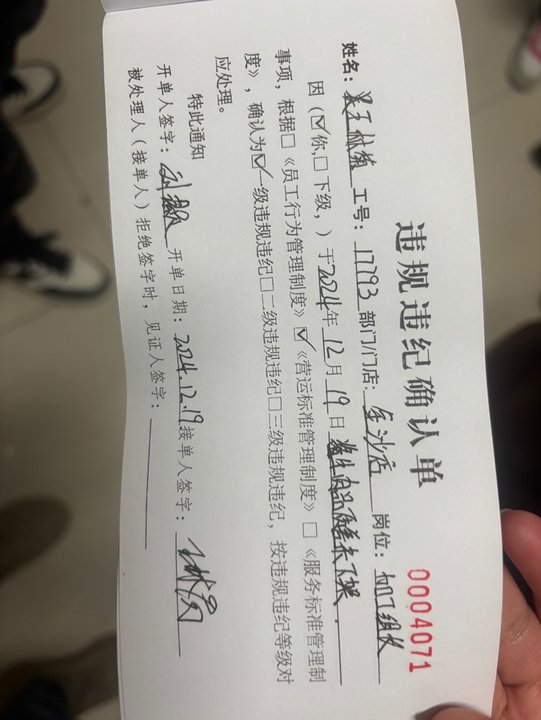 违规违纪确认单
0004071
姓名： 工号：17793 部门/门店：金沙店 岗位：加工组长
因（☑你、☐下级，）于2024年12月19日
事项，根据☐《员工行为管理制度》☑《营运标准管理制度》☐《服务标准管理制
度》，确认为☑一级违规违纪☐二级违规违纪☐三级违规违纪，按违规违纪等级对
应处理。
特此通知
开单人签字： 开单日期：2024.12.19 接单人签字：
被处理人（接单人）拒绝签字时，见证人签字：